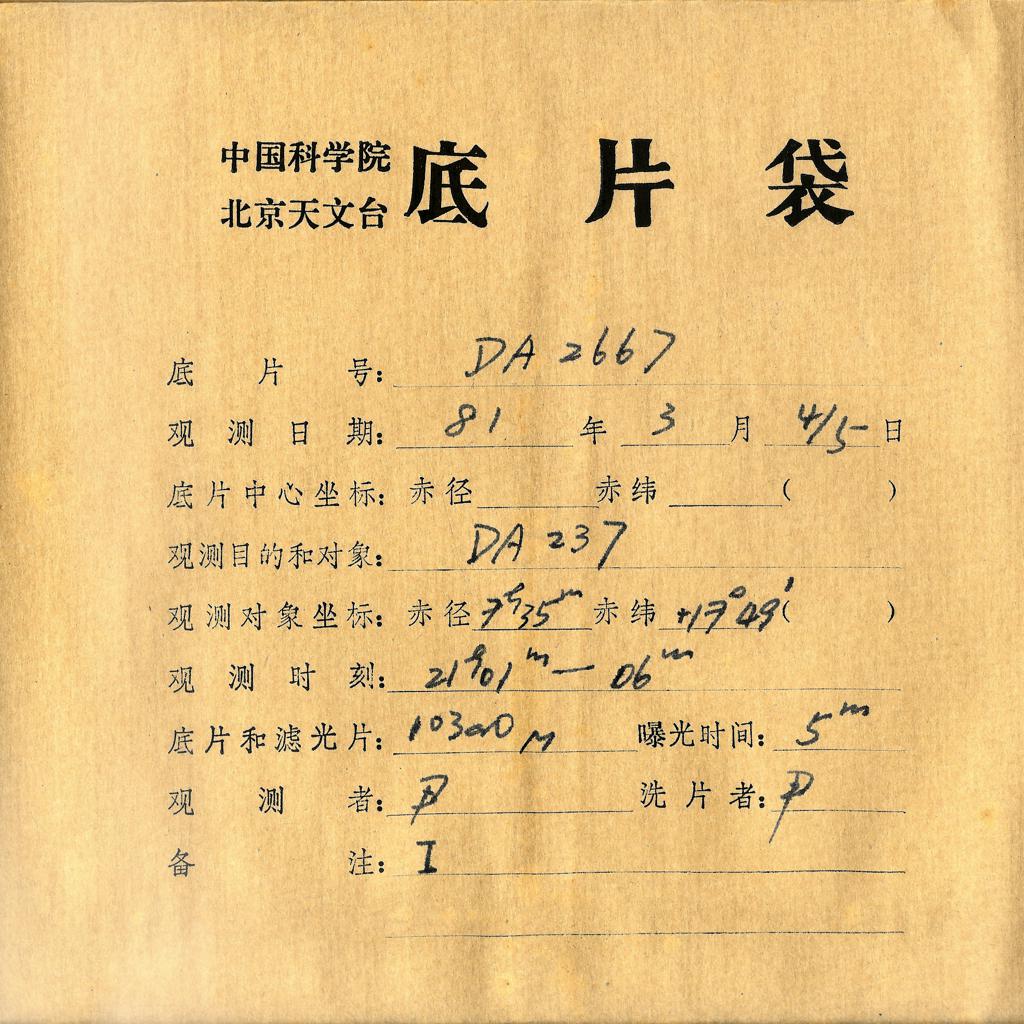 中国科学院
北京天文台
底片袋
底片号: DA 2667
观测日期: 81 年 3 月 4/5 日
底片中心坐标: 赤径 赤纬 ( )
观测目的和对象: DA 237
观测对象坐标: 赤径 7h35m 赤纬 +17°49′ ( )
观测时刻: 21h01m — 06m
底片和滤光片: 103aO M 曝光时间: 5m
观测者: 尹 洗片者: 尹
备注: I